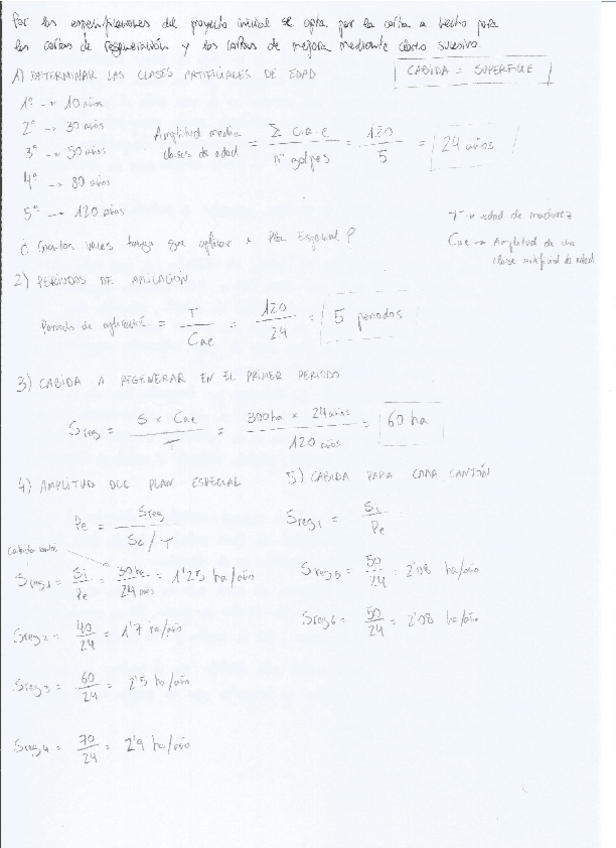 Por las especificaciones del proyecto inicial se opta por la corta a hecho para
las cortas de regeneración y las cortas de mejora mediante clareo sucesivo.
1) DETERMINAR LAS CLASES ARTIFICIALES DE EDAD
CABIDA = SUPERFICIE
1ª -> 10 años
2ª -> 30 años
3ª -> 50 años
4ª -> 80 años
5ª -> 120 años
Amplitud media clases de edad = Σ c.a.e / nº golpes = 120 / 5 = 24 años
T -> edad de madurez
Cae -> Amplitud de una
clase artificial de edad
¿Cuantas veces tengo que aplicar el Plan Especial?
2) PERIODOS DE APLICACIÓN
Periodo de aplicación = T / Cae = 120 / 24 = 5 periodos
3) CABIDA A REGENERAR EN EL PRIMER PERIODO
Sreg = S x Cae / T = 300 ha x 24 años / 120 años = 60 ha
4) AMPLITUD DEL PLAN ESPECIAL
Pe = Sreg / Sc / T
5) CABIDA PARA CADA CANTÓN
Sreg i = Si / Pe
Sreg1 = Si / Pe = 30 ha / 24 años = 1'25 ha/año
Sreg2 = 40 / 24 = 1'7 ha/año
Sreg3 = 60 / 24 = 2'5 ha/año
Sreg4 = 70 / 24 = 2'9 ha/año
Sreg5 = 50 / 24 = 2'08 ha/año
Sreg6 = 50 / 24 = 2'08 ha/año